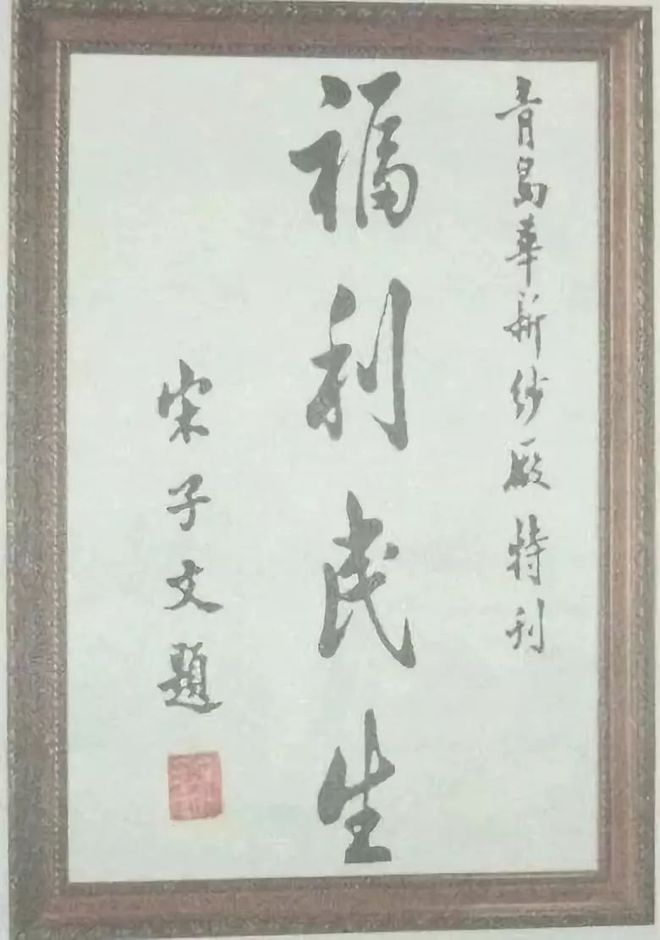 青島華新紗廠特刊
福利民生
宋子文題